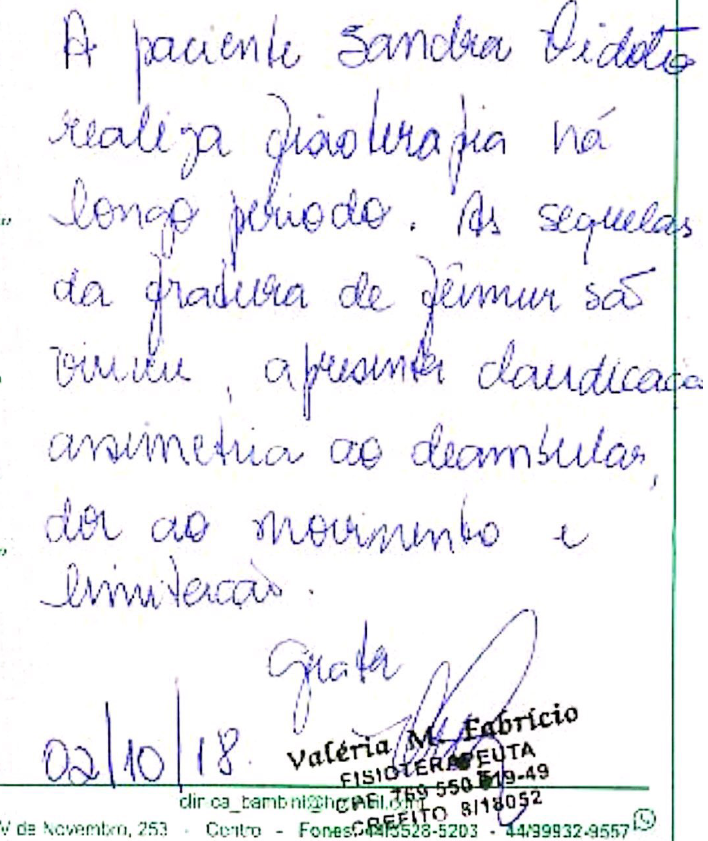 A paciente Sandra Vidoto
realiza fisioterapia há
longo período. As sequelas
da fratura de fêmur são
, apresenta claudicação
assimetria ao deambular,
dor ao movimento e
limitação.
Grata
02/10/18.
Valéria M. Fabrício
FISIOTERAPEUTA
CPF 769 550 519-49
CREFITO 8/18052
clinica_bambini@hotmail.com
V de Novembro, 253 - Centro - Fones: 44/3528-5203 - 44/99932-9557